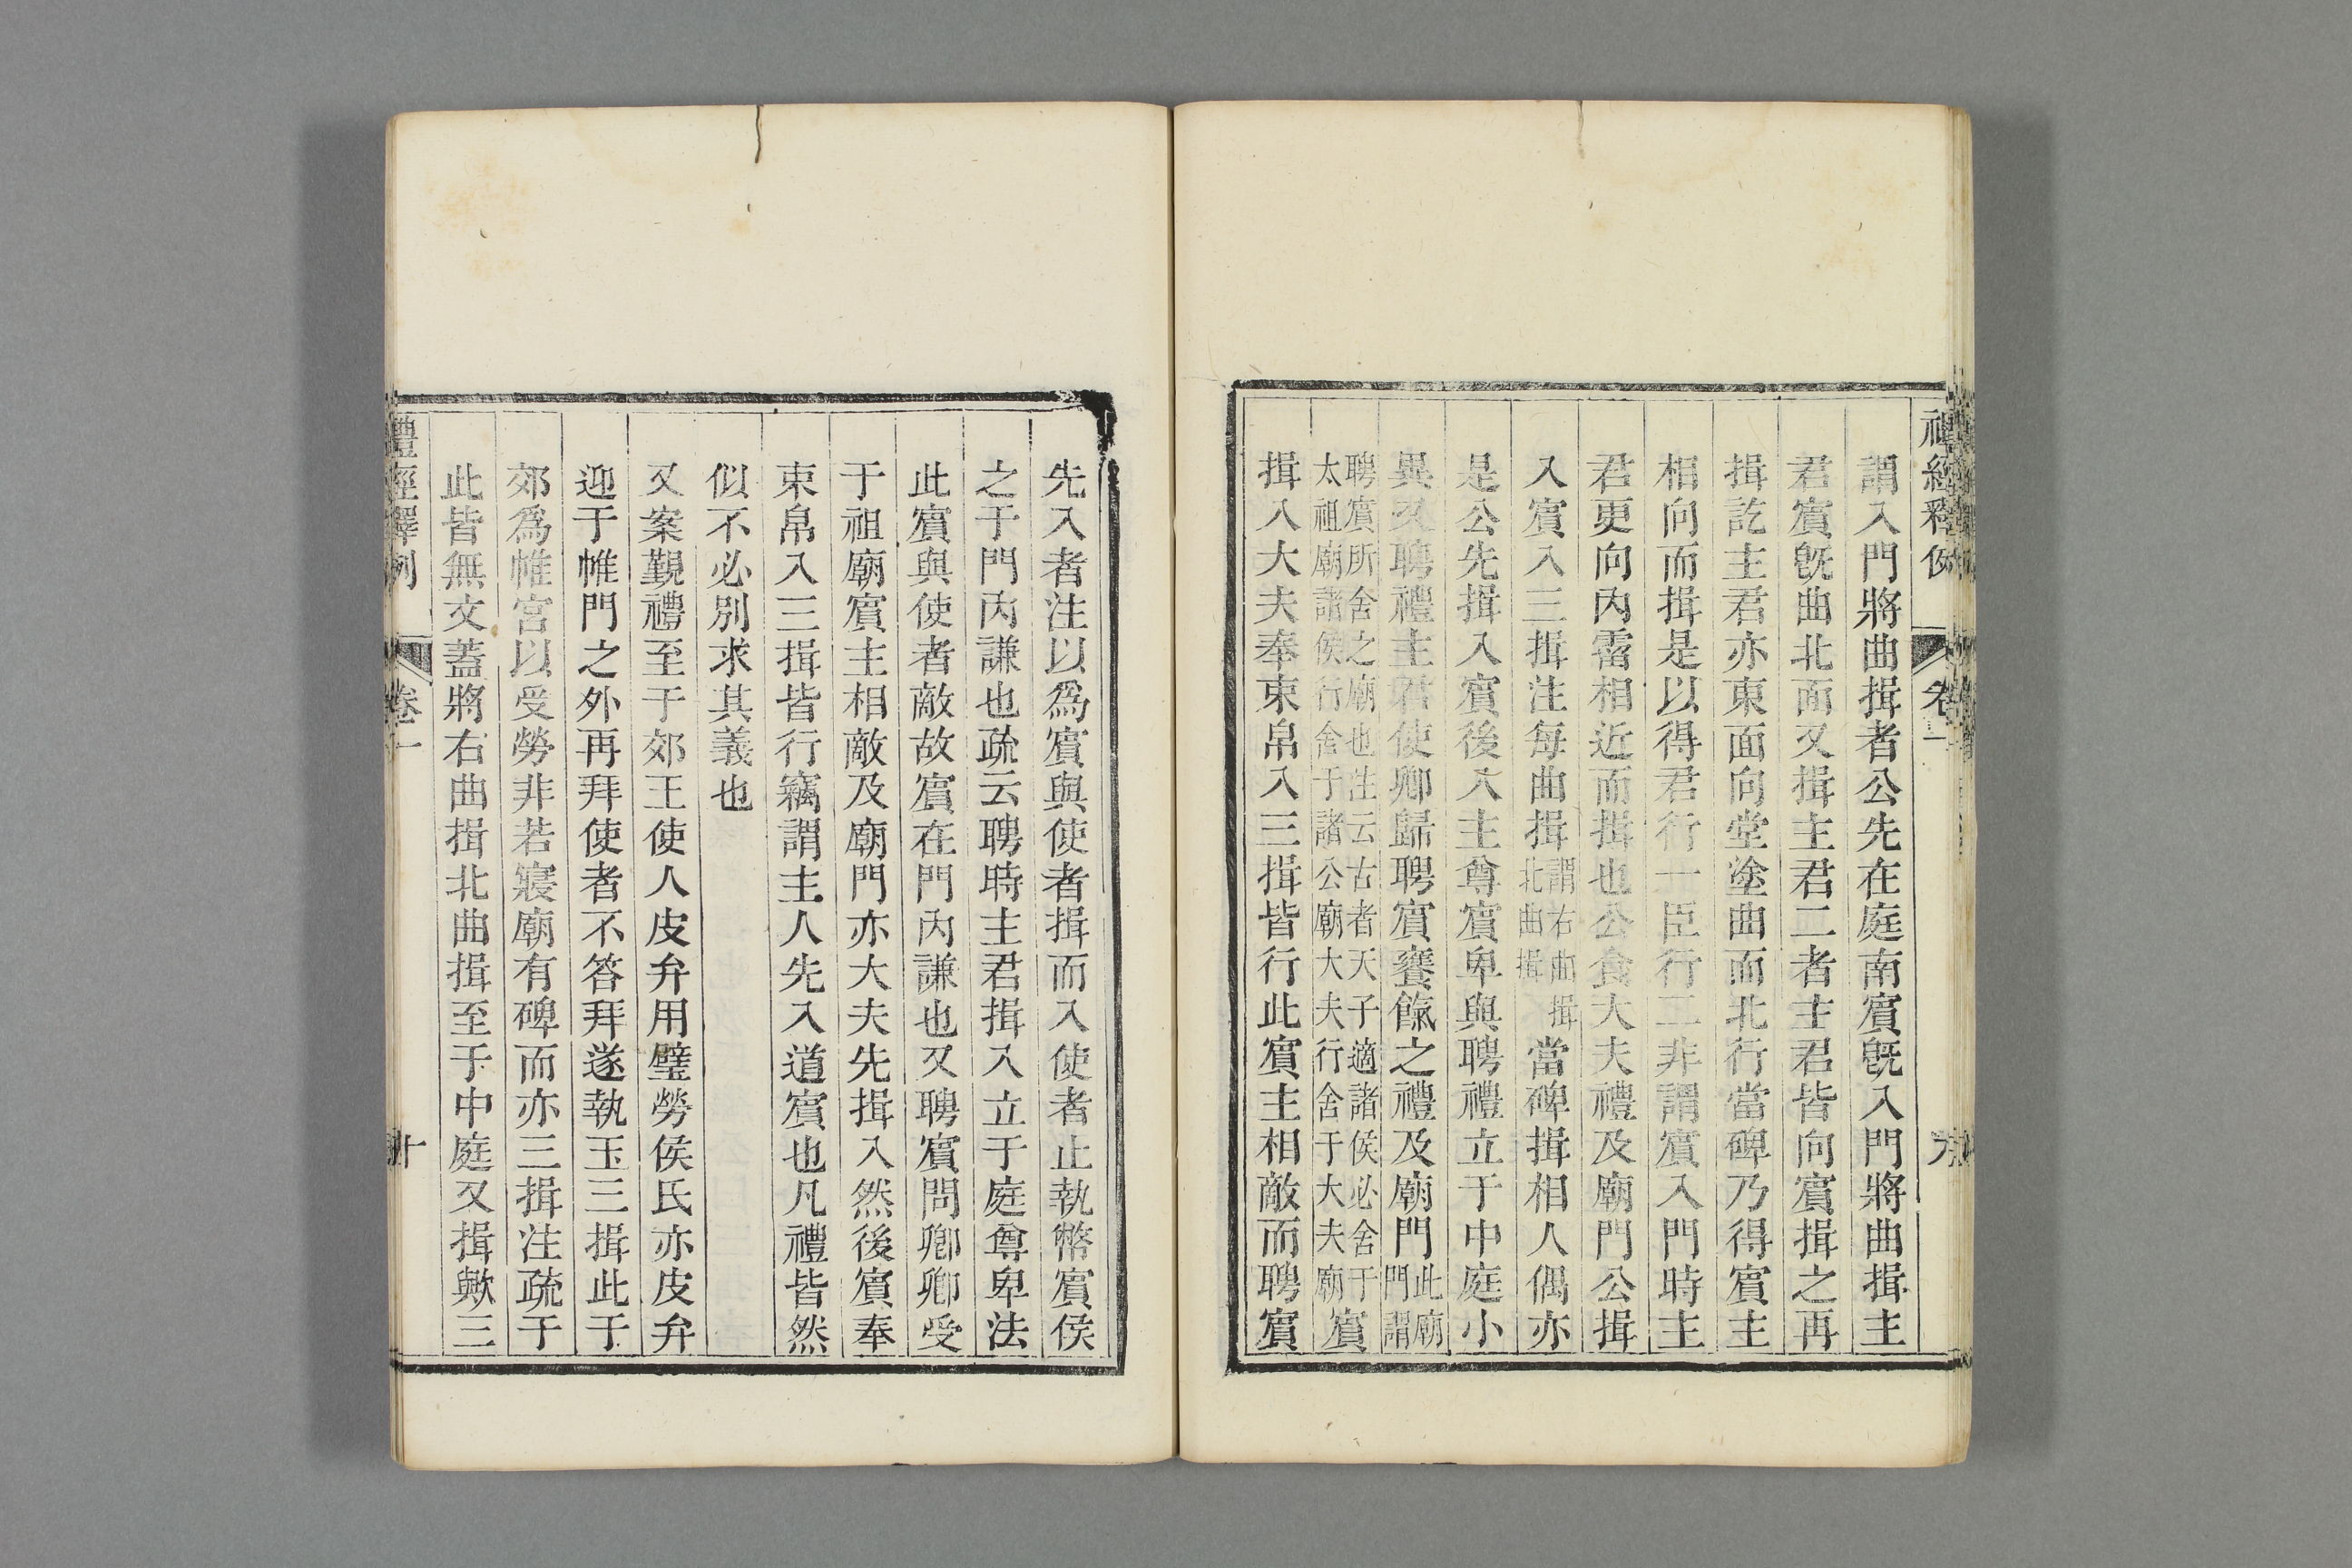 禮經釋例 卷一 九
謂入門將曲揖者公先在庭南賓旣入門將曲揖主
君賓旣曲北面又揖主君二者主君皆向賓揖之再
揖訖主君亦東面向堂塗曲而北行當碑乃得賓主
相向而揖是以得君行一臣行二非謂賓入門時主
君更向內霤相近而揖也公食大夫禮及廟門公揖
入賓入三揖注每曲揖謂右曲揖北曲揖當碑揖相人偶亦
是公先揖入賓後入主尊賓卑與聘禮立于中庭小
異又聘禮主君使卿歸聘賓饔餼之禮及廟門此廟門謂
聘賓所舍之廟也注云古者天子適諸侯必舍于太祖廟諸侯行舍于諸公廟大夫行舍于大夫廟賓
揖入大夫奉束帛入三揖皆行此賓主相敵而聘賓
先入者注以爲賓與使者揖而入使者止執幣賓俟
之于門內謙也疏云聘時主君揖入立于庭尊卑法
此賓與使者敵故賓在門內謙也又聘賓問卿卿受
于祖廟賓主相敵及廟門亦大夫先揖入然後賓奉
束帛入三揖皆行竊謂主人先入道賓也凡禮皆然
似不必別求其義也
又案覲禮至于郊王使人皮弁用璧勞侯氏亦皮弁
迎于帷門之外再拜使者不答拜遂執玉三揖此于
郊爲帷宮以受勞非若寢廟有碑而亦三揖注疏于
此皆無文蓋將右曲揖北曲揖至于中庭又揖歟三
禮經釋例 卷一 十